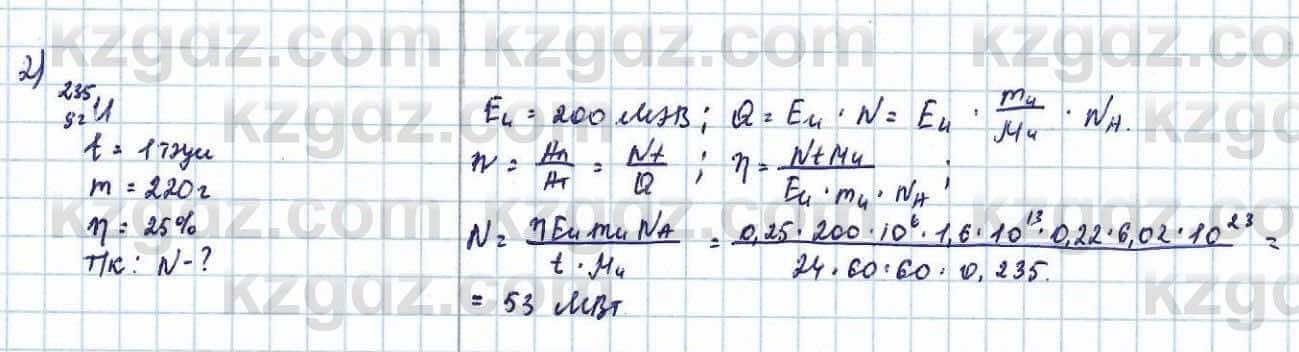 2)
²³⁵₉₂U
t = 1 тәул
m = 220 г
η = 25%
Т/к: N - ?
Eᵤ = 200 МэВ; Q = Eᵤ · N = Eᵤ · mᵤ/Mᵤ · N_A.
η = Aп/Aт = Nt/Q; η = NtMᵤ/Eᵤ · mᵤ · N_A;
N = ηEᵤmᵤN_A/t · Mᵤ = 0,25 · 200 · 10⁶ · 1,6 · 10¹³ · 0,22 · 6,02 · 10²³/24 · 60 · 60 · 0,235. =
= 53 МВт
kzgdz.com kzgdz.com kzgdz.com
kzgdz.com kzgdz.com kzgdz.com
kzgdz.com kzgdz.com kzgdz.com
kzgdz.com kzgdz.com kzgdz.com